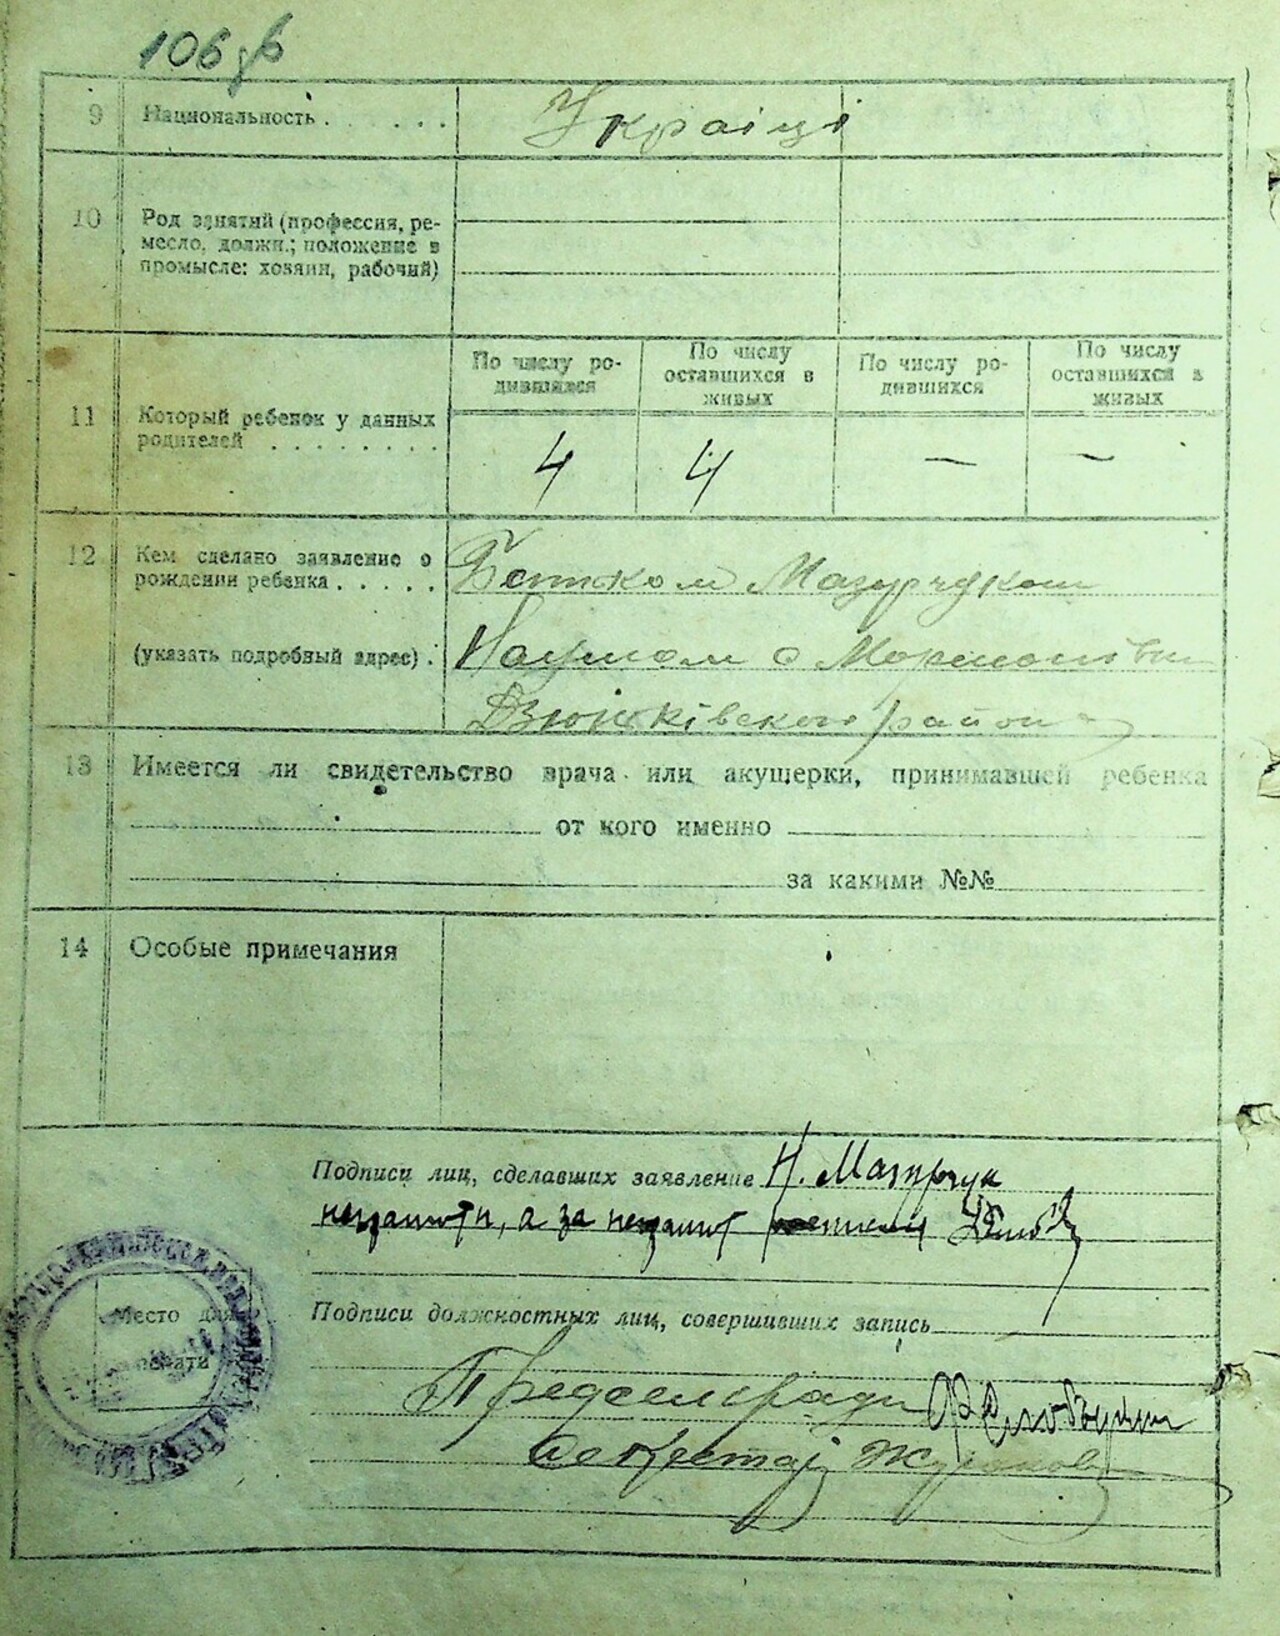 106 зв
9 Национальность . . . . . Українці
10 Род занятий (профессия, ре-
месло, должн.; положение в
промысле: хозяин, рабочий)
По числу ро-
дившихся
По числу
оставшихся в
живых
По числу ро-
дившихся
По числу
оставшихся в
живых
11 Который ребенок у данных
родителей . . . . . . . .
4 4 — —
12 Кем сделано заявление о
рождении ребенка . . . . . Батьком Мазурчуком
(указать подробный адрес) . Наумом с
Дзюньківского району
13 Имеется ли свидетельство врача или акушерки, принимавшей ребенка
от кого именно
за какими №№
14 Особые примечания
Подписи лиц, сделавших заявление Н. Мазурчук
, а за
Место для
печати
Подписи должностных лиц, совершивших запись
Предсельради
Секретарь